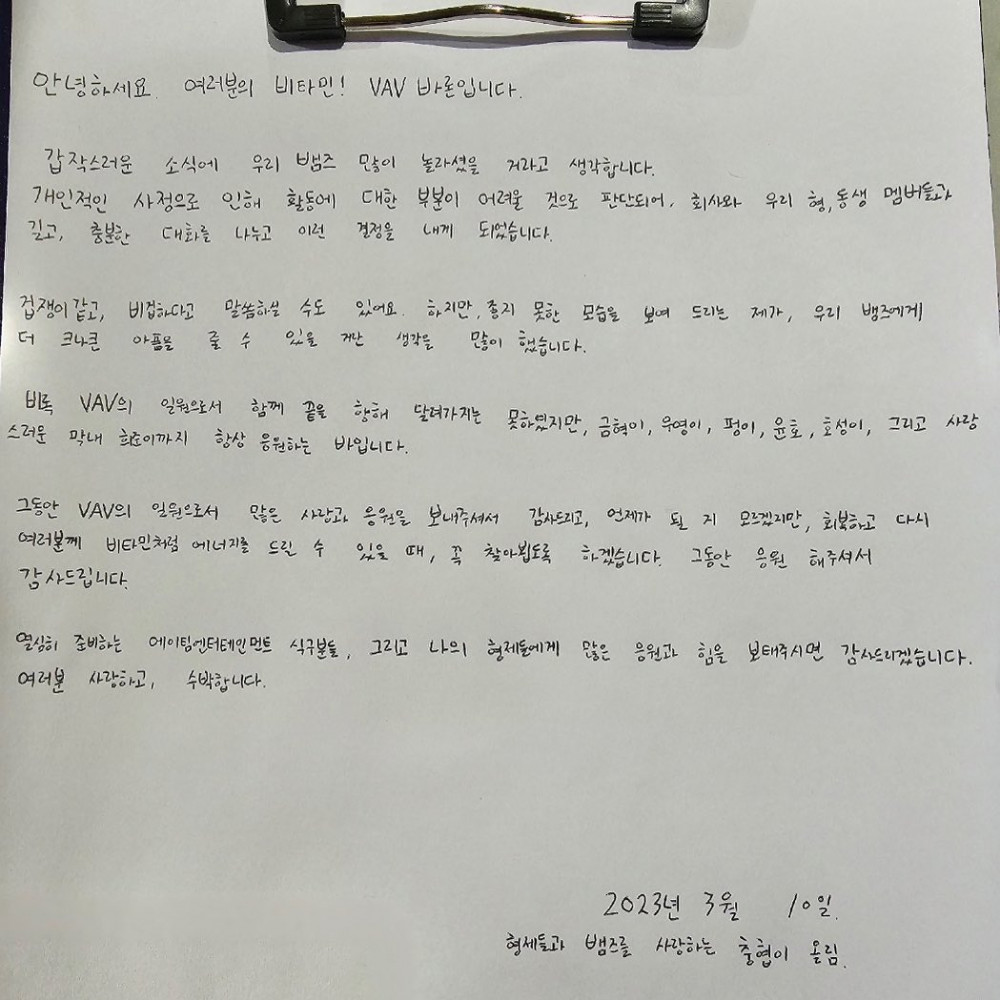 안녕하세요. 여러분의 비타민! VAV 바론입니다.
갑작스러운 소식에 우리 뱀즈 많이 놀라셨을 거라고 생각합니다.
개인적인 사정으로 인해 활동에 대한 부분이 어려울 것으로 판단되어, 회사와 우리 형, 동생 멤버들과
길고, 충분한 대화를 나누고 이런 결정을 내게 되었습니다.
겁쟁이같고, 비겁하다고 말씀하실 수도 있어요. 하지만, 좋지 못한 모습을 보여 드리는 제가, 우리 뱀즈에게
더 크나큰 아픔을 줄 수 있을 거란 생각을 많이 했습니다.
비록 VAV의 일원으로서 함께 끝을 향해 달려가지는 못하였지만, 금혁이, 우영이, 펑이, 윤호, 호성이, 그리고 사랑
스러운 막내 희준이까지 항상 응원하는 바입니다.
그동안 VAV의 일원으로서 많은 사랑과 응원을 보내주셔서 감사드리고, 언제가 될 지 모르겠지만, 회복하고 다시
여러분께 비타민처럼 에너지를 드린 수 있을 때, 꼭 찾아뵙도록 하겠습니다. 그동안 응원 해주셔서
감사드립니다.
열심히 준비하는 에이팀엔터테인먼트 식구분들, 그리고 나의 형제들에게 많은 응원과 힘을 보태주시면 감사드리겠습니다.
여러분 사랑하고, 수박합니다.
2023년 3월 10일.
형제들과 뱀즈를 사랑하는 충협이 올림.